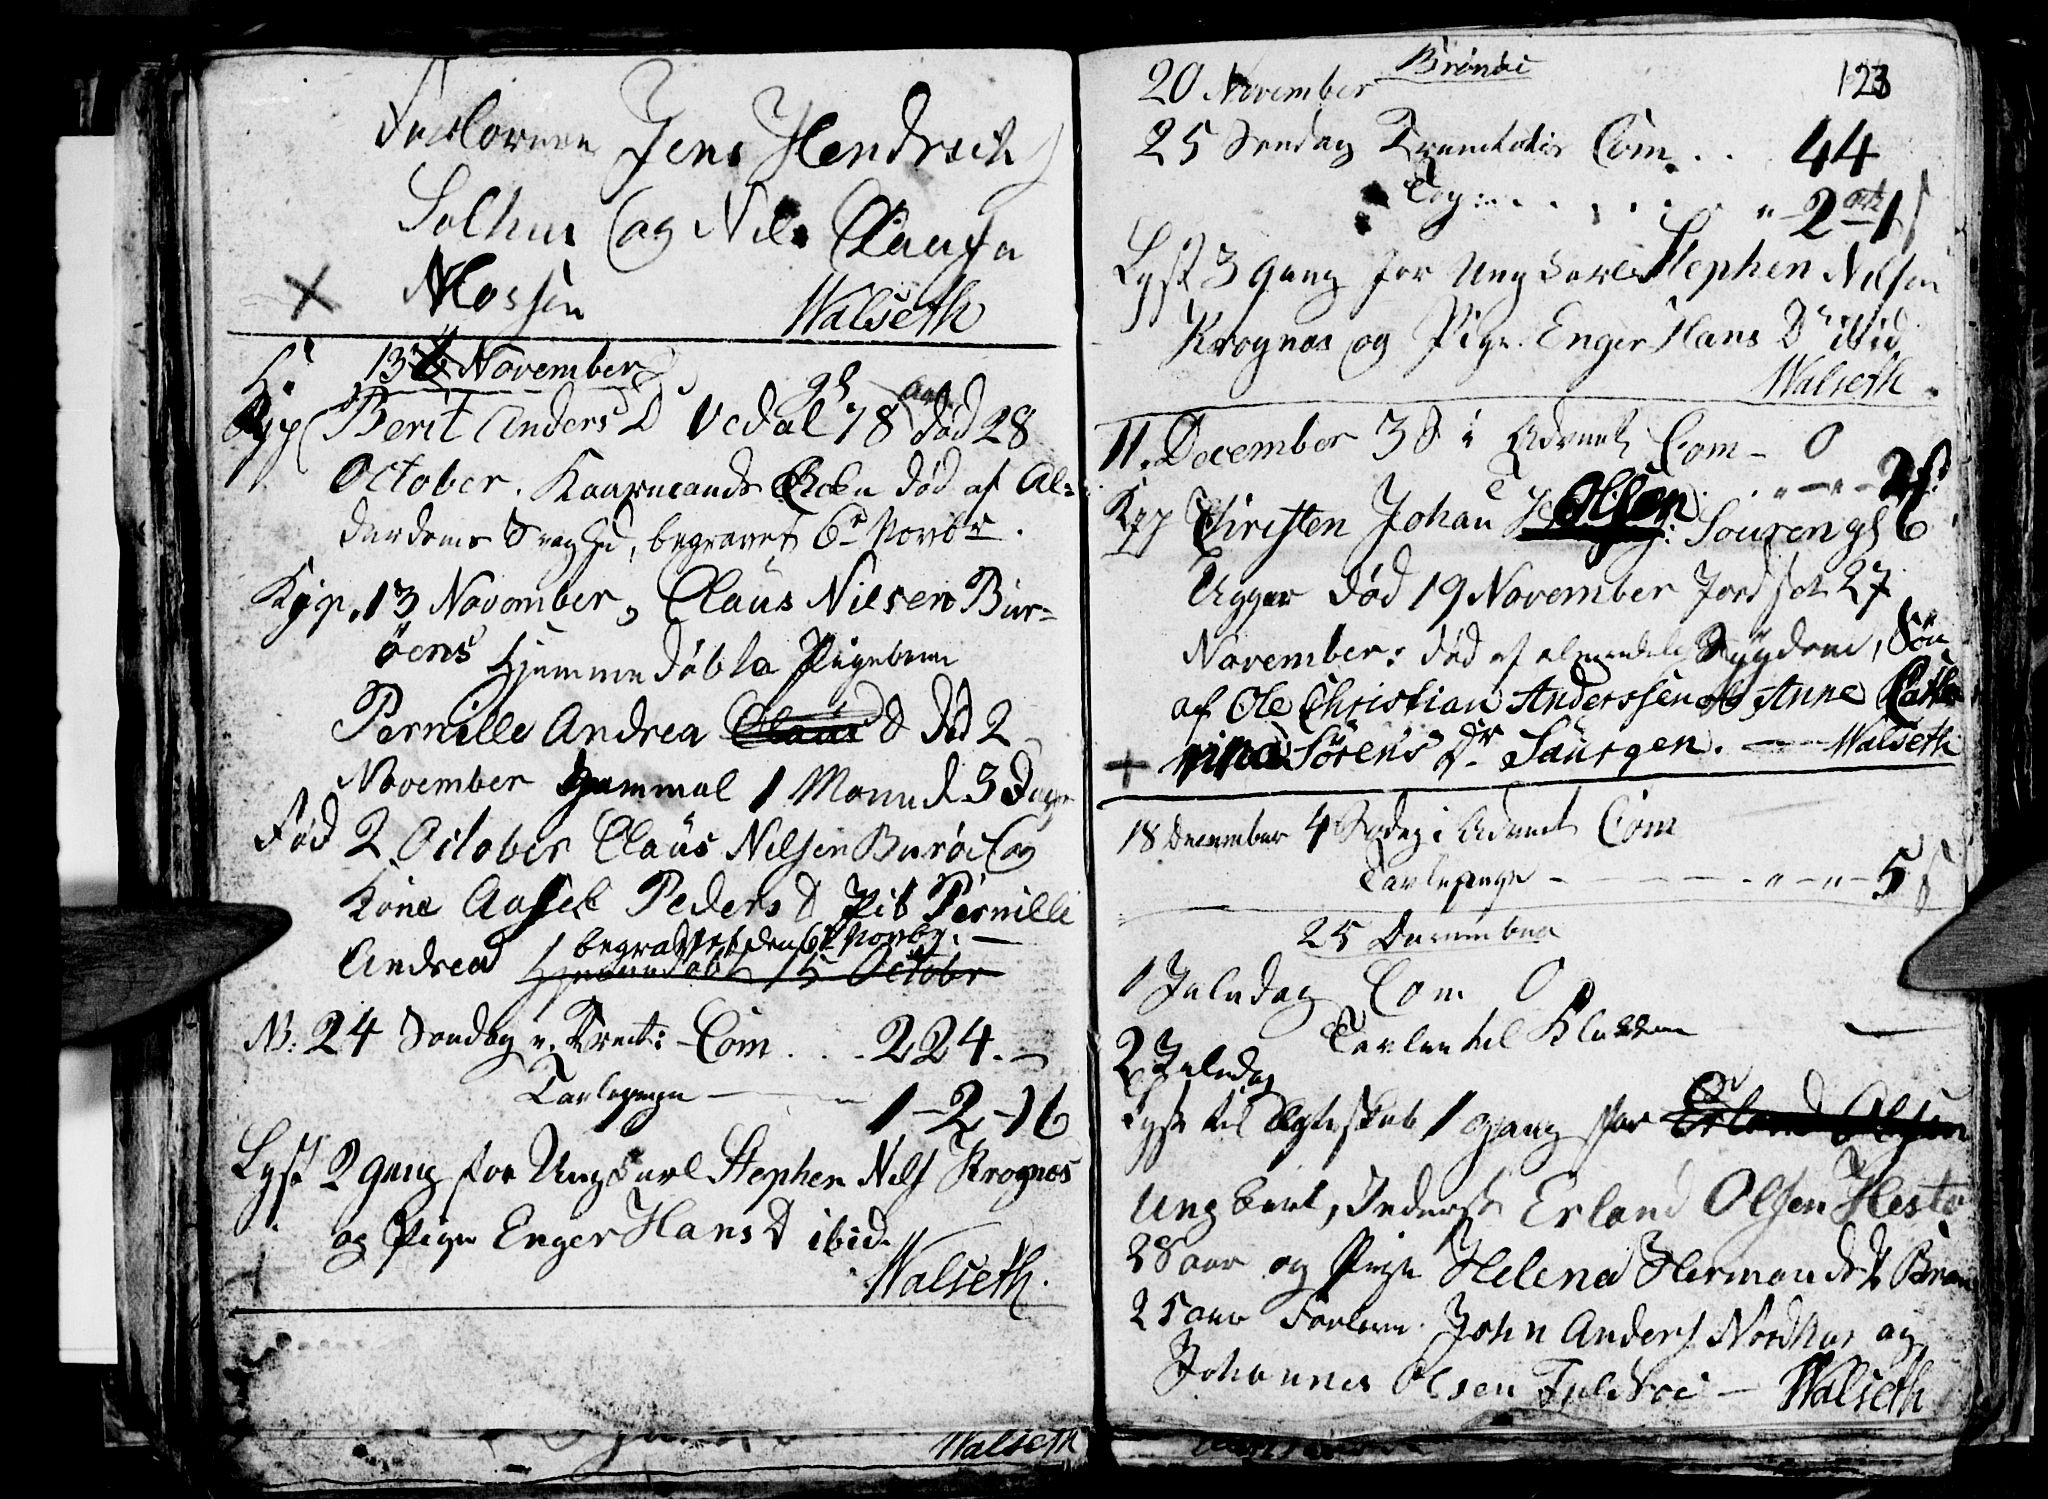 Forlovere Jens Hendrich
Solhus og Nils Clausen
Mossen Walseth
13 November
Kyp Berit Anders D Vedal gl 78 Aar død 28
October. Kaarmands Enke død af Al=
derdoms Svaghed, begravet 6te Novbr.
Kyp. 13 November, Claus Nilsen Bur=
öens Hjemmedøbte Pigebarn
Pernille Andrea Claus D død 2
November Gammel 1 Maaned 3 Dage
Fød 2 October Claus Nilsen Burøe og
Kone Aasel Peders D Pib Pernille
begravet den 6te Novbr.
Andrea Hjemmedøbt 15 Octobr
NB: 24 Søndag e. Trinit: Com . . . 224. -
Tavlepenge 1 - 2 - 16
Lyst 2 Gang for Ungkarl Stephen Nils Krognes
og Pige Enger Hans D ibid.
Walseth.
Walseth
Brønöe
123
20 November
25 Søndag Trinitatis Com. . . 44
Tav: . . . . . . " 2 ort 1 s
Lyst 3 Gang for Ungkarl Stephen Nilsen
Krognes og Pige Enger Hans Dr ibid
Walseth.
11. December 3 S i Advent Com - 0
T . . " - " - 2 s
Kyp Christen Johan Olsen Souren gl 6
Uger død 19 November Jordsat 27
November: død af almindelig Sygdom, Sön
af Ole Christian Anderssen og Anne Cath
rina Sörens Dr Saursgen. - Walseth
18 December 4 Søndag i Advent Com
Tavlepenge - - - - " - " - 5 s
25 December
1 Juledag Com 0
Tavlen til Klokkeren -
2 Juledag
Lyst til Ægteskab 1 Gang for Erland Olsen
Ungkarl, Inderst Erland Olsen Hestø
28 aar og Pige Helena Hermands D Brøn
25 aar Forlovere John Anders Nordhus og
Johannes Olsen Tilrøe - Walseth